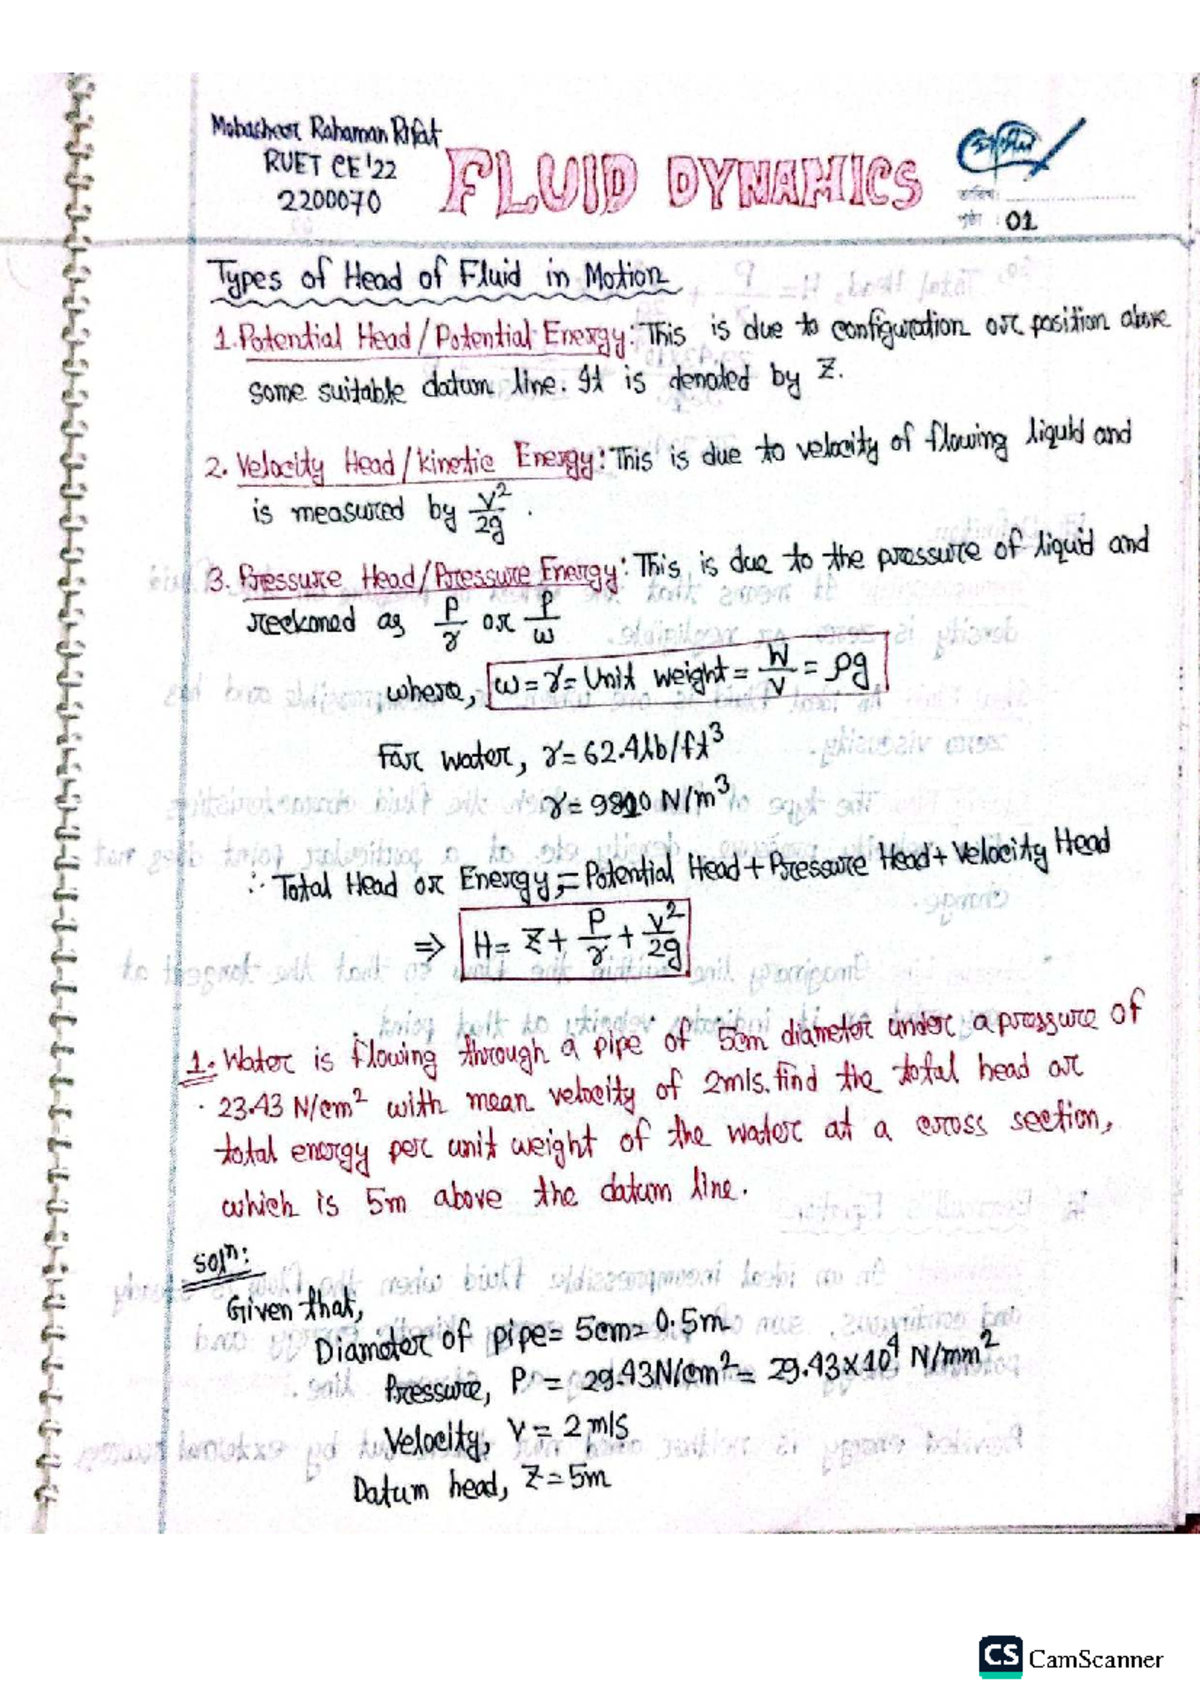 Mobasheer Rahaman Rifat
RUET CE'22
2200070
FLUID DYNAMICS
তারিখ:
পৃষ্ঠা : 01
Types of Head of Fluid in Motion
1. Potential Head/Potential Energy: This is due to configuration or position above
some suitable datum line. It is denoted by Z.
2. Velocity Head/kinetic Energy: This is due to velocity of flowing liquid and
is measured by V²/2g.
3. Pressure Head/Pressure Energy: This is due to the pressure of liquid and
reckoned as P/γ or P/ω
where, ω=γ=Unit weight=W/V=ρg
For water, γ=62.4lb/ft³
γ=9810 N/m³
∴ Total Head or Energy,=Potential Head+Pressure Head+Velocity Head
⇒ H= Z+P/γ+V²/2g
1. Water is flowing through a pipe of 5cm diameter under a pressure of
23.43 N/cm² with mean velocity of 2m/s. find the total head or
total energy per unit weight of the water at a cross section,
which is 5m above the datum line.
Solⁿ:
Given that,
Diameter of pipe= 5cm= 0.5m
Pressure, P = 29.43N/cm²= 29.43×10⁴ N/mm²
Velocity, V = 2m/s
Datum head, Z=5m
CS CamScanner